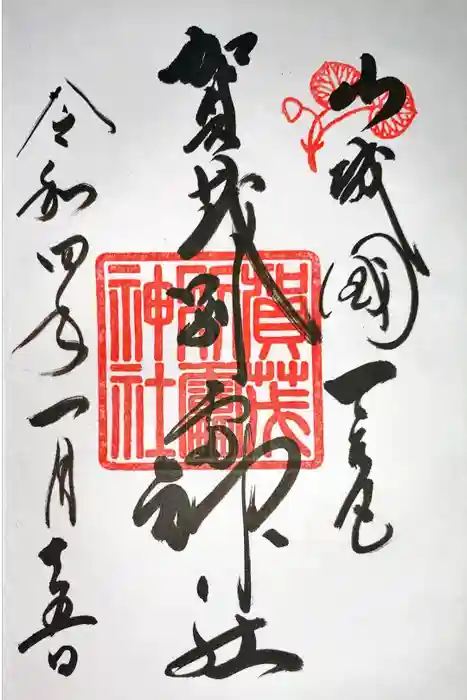 山城國一之宮
賀茂別雷神社
賀茂別雷神社
令和四年一月十五日